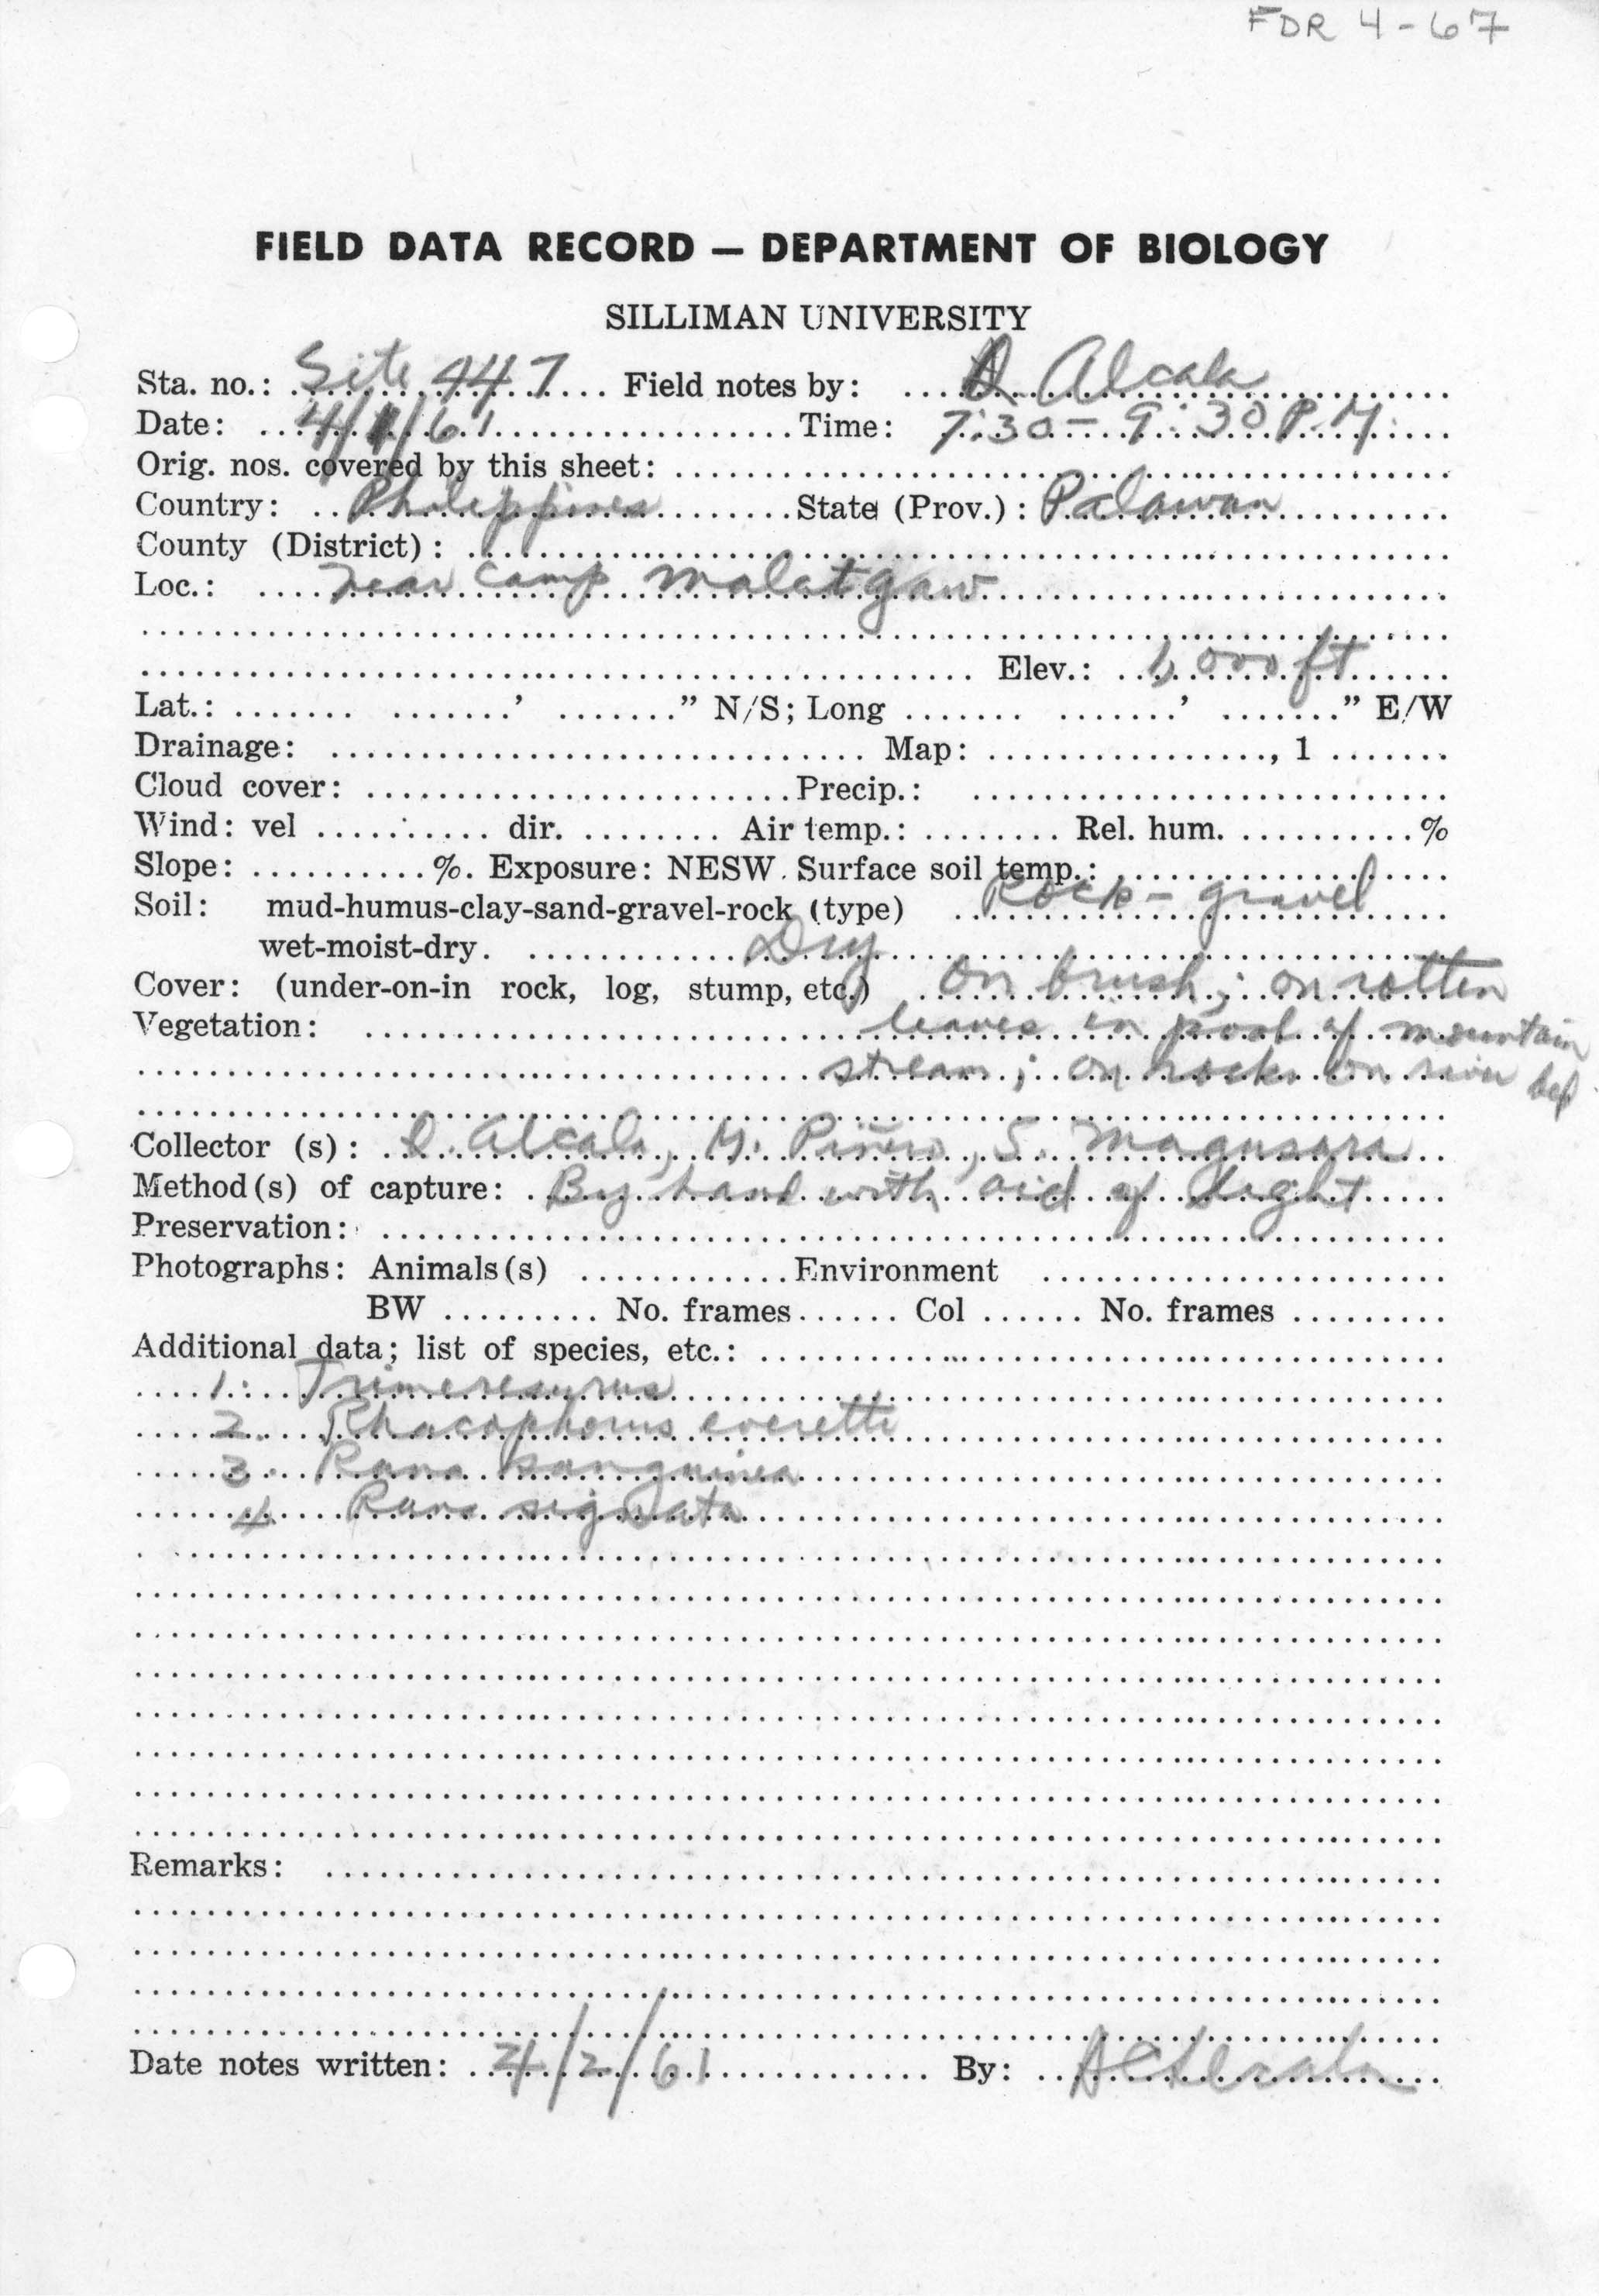 FDR 4-67
FIELD DATA RECORD — DEPARTMENT OF BIOLOGY
SILLIMAN UNIVERSITY
Sta. no.: Site 447 Field notes by: A. Alcala
Date: 4/1/61 Time: 7:30 - 9:30 P.M.
Orig. nos. covered by this sheet:
Country: Philippines State (Prov.): Palawan
County (District):
Loc.: near camp malatgaw
Elev.: 1,000 ft
Lat.: ' " N/S; Long ' " E/W
Drainage: Map: , 1
Cloud cover: Precip.:
Wind: vel dir. Air temp.: Rel. hum. %
Slope: %. Exposure: NESW. Surface soil temp.:
Soil: mud-humus-clay-sand-gravel-rock (type) Rock - gravel
wet-moist-dry. Dry
Cover: (under-on-in rock, log, stump, etc.) On brush; on rotten
Vegetation: leaves in pool of mountain
stream; on rocks on river bed
Collector (s): A. Alcala, Piñero, S. Magusara
Method(s) of capture: By hand with aid of light
Preservation:
Photographs: Animals(s) Environment
BW No. frames Col No. frames
Additional data; list of species, etc.:
1. Trimeresurus
2. Rhacophorus everetti
3. Rana sanguinea
4. Rana signata
Remarks:
Date notes written: 4/2/61 By: ACAlcala